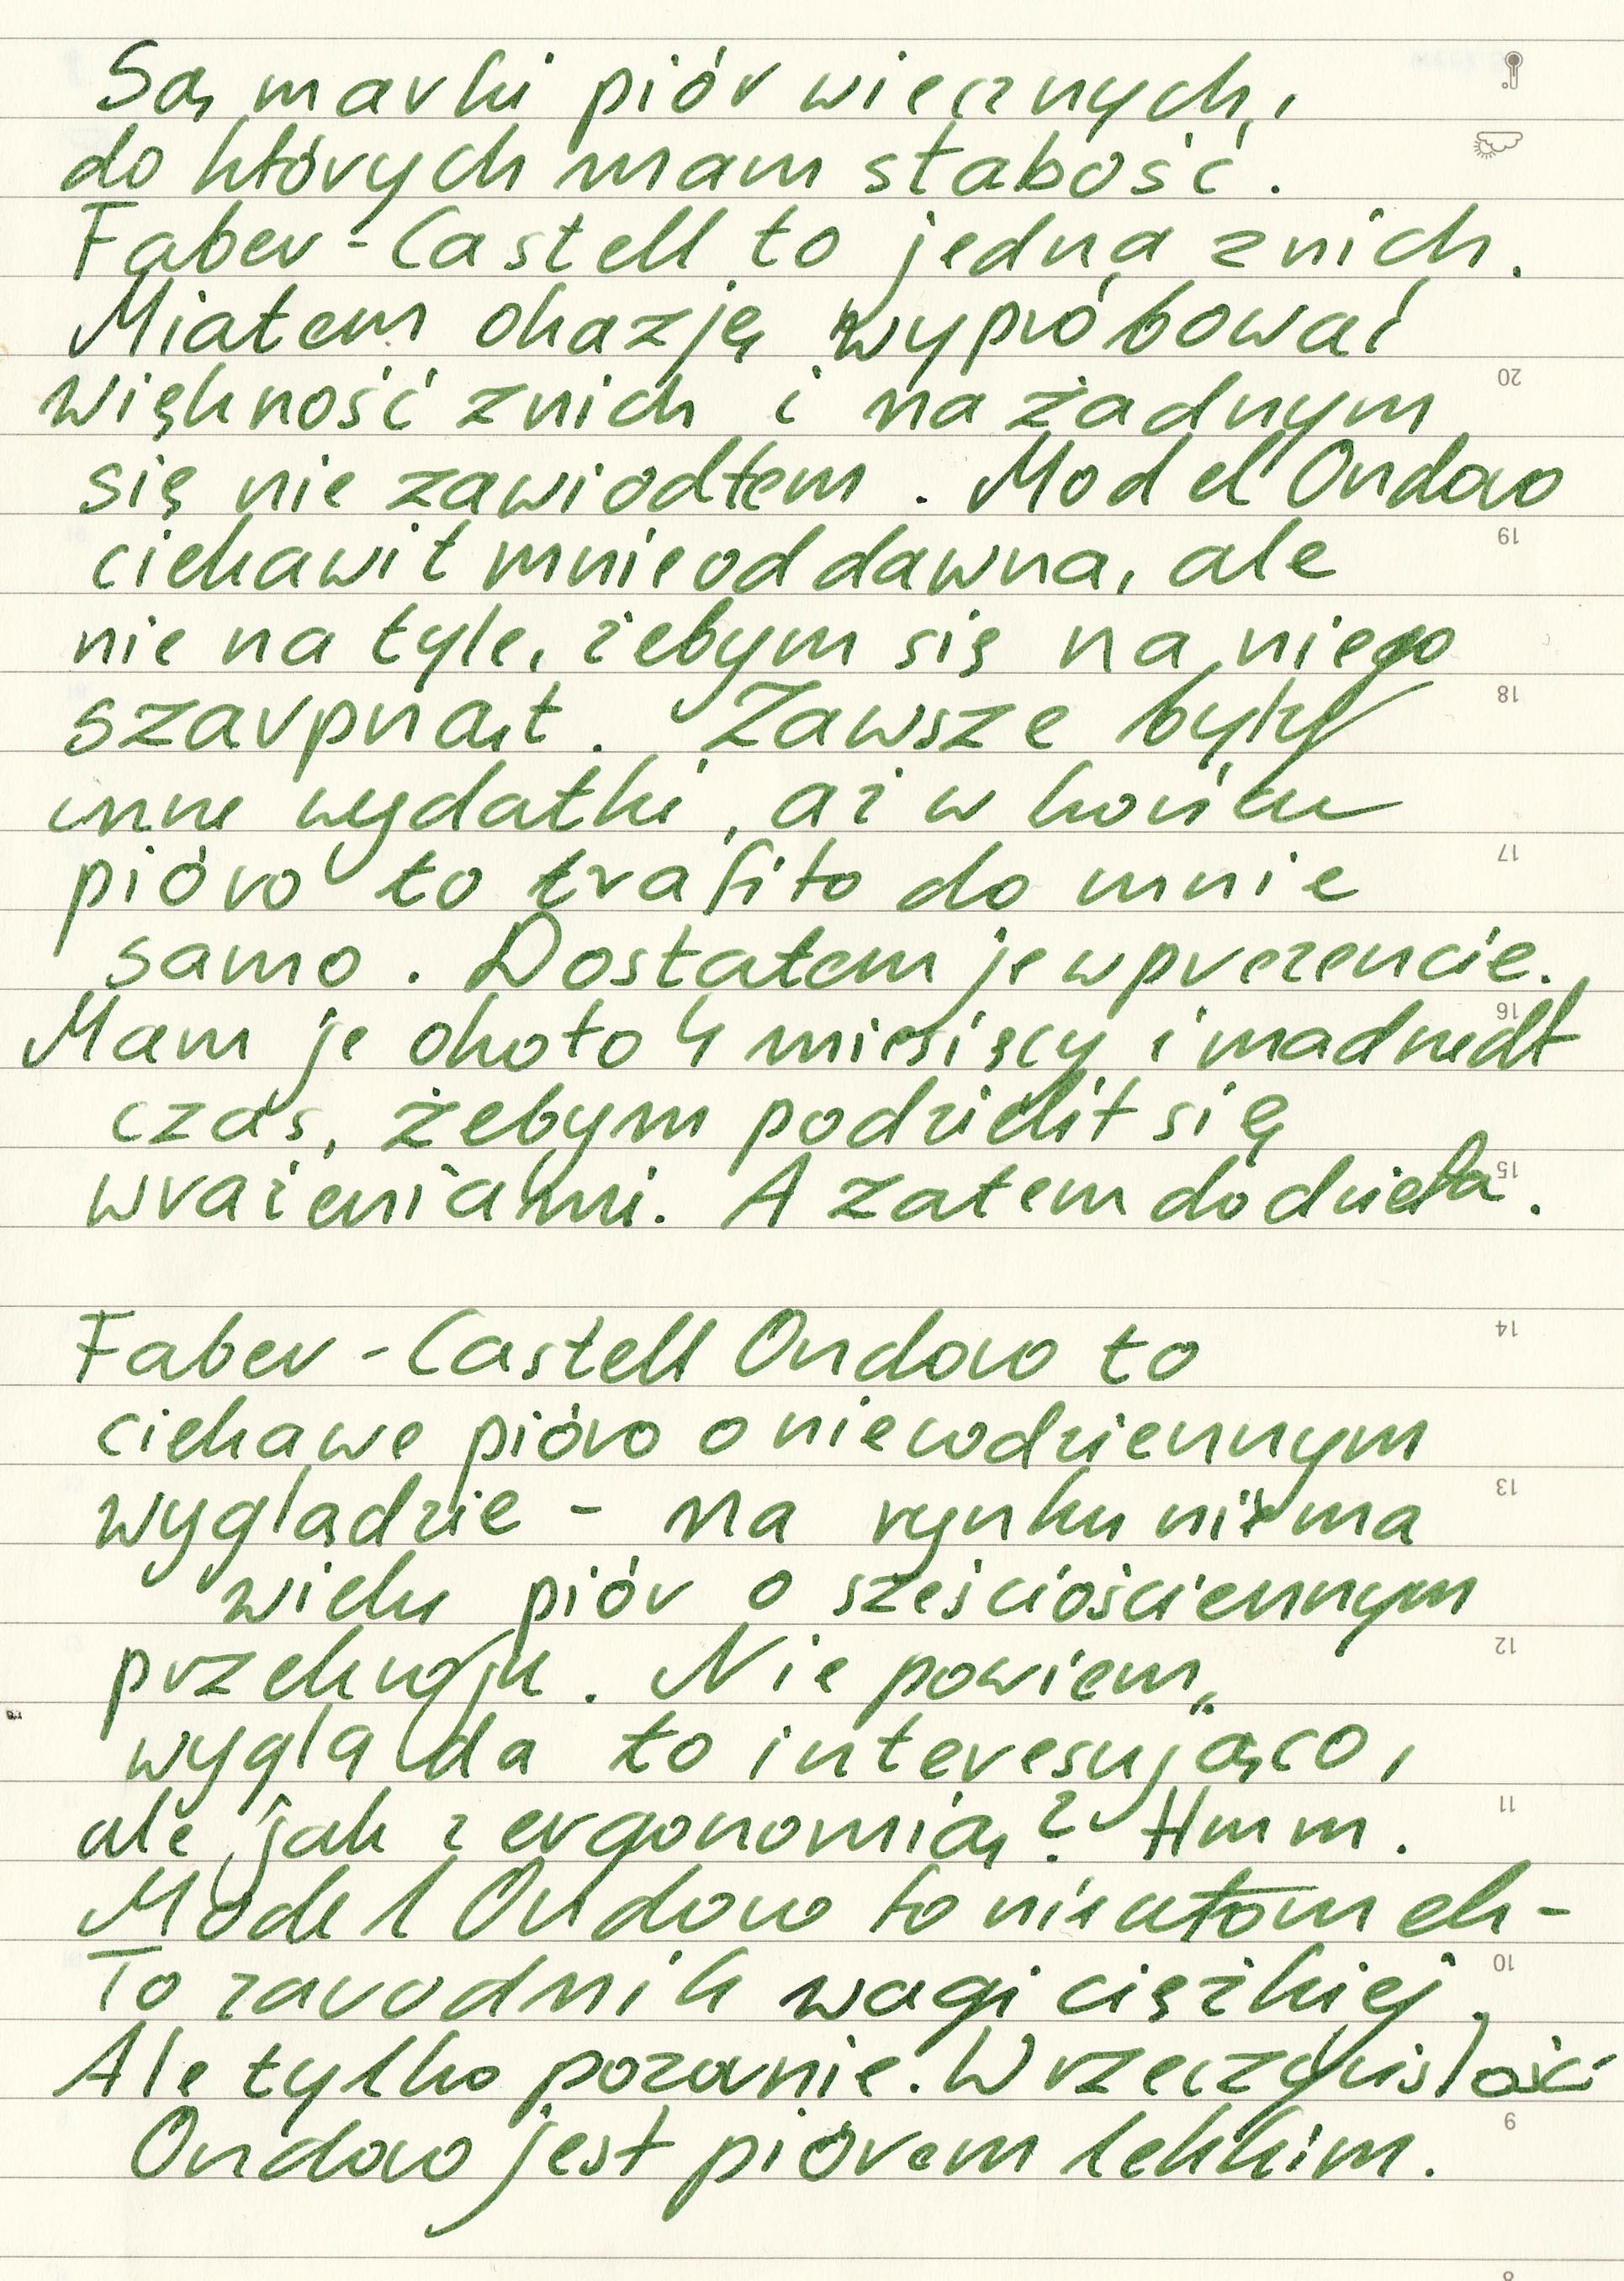 Są marki piór wiecznych,
do których mam słabość.
Faber-Castell to jedna z nich.
Miałem okazję wypróbować
większość z nich i na żadnym
się nie zawiodłem. Model Ondoro
ciekawił mnie od dawna, ale
nie na tyle, żebym się na niego
szarpnął. Zawsze były
inne wydatki, aż w końcu
pióro to trafiło do mnie
samo. Dostałem je w prezencie.
Mam je około 4 miesięcy i nadszedł
czas, żebym podzielił się
wrażeniami. A zatem do dzieła.
Faber-Castell Ondoro to
ciekawe pióro o niecodziennym
wyglądzie - na rynku nie ma
wielu piór o sześciościennym
przekroju. Nie powiem,
wygląda to interesująco,
ale jak z ergonomią? Hmm.
Model Ondoro to nie ułomek -
To zawodnik wagi ciężkiej.
Ale tylko pozornie. W rzeczywistości
Ondoro jest piórem lekkim.
20
19
18
17
16
15
14
13
12
11
10
9
8